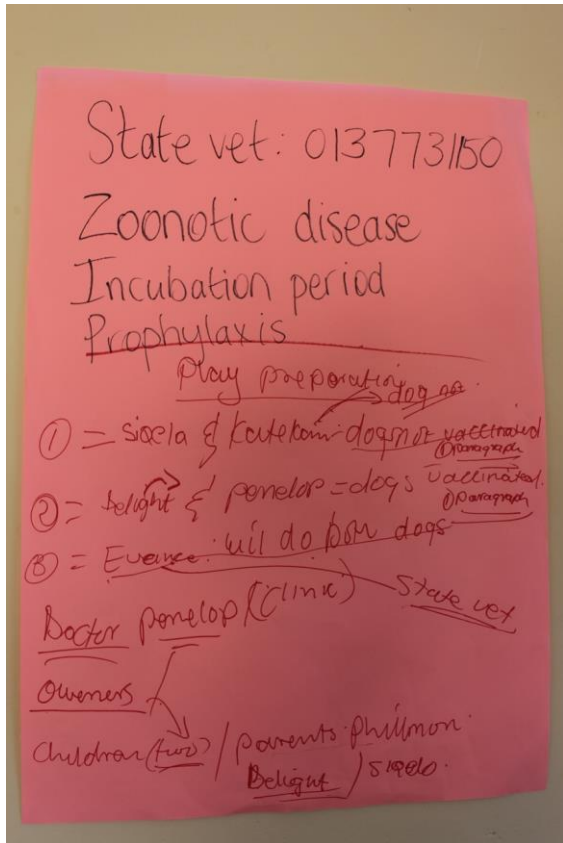 State vet: 0137731150
Zoonotic disease
Incubation period
Prophylaxis
Play preparation
dog not
① = sigela & Katekani dogs not vaccinated
① paragraph
② = Delight & penelop = dogs vaccinated.
① paragraph
③ = Evance: will do both dogs
State vet
Doctor penelop (Clinic)
Owners
Children (two) / parents phillmon
Delight /